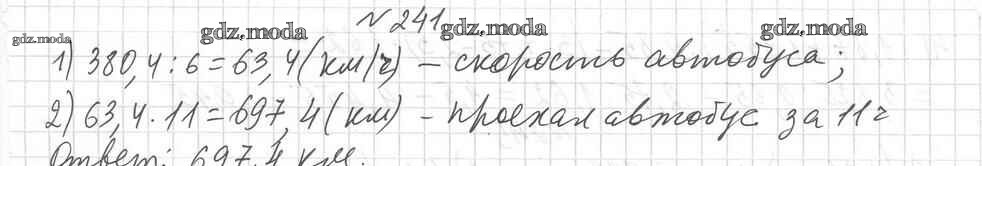 № 241
gdz.moda gdz.moda gdz.moda gdz.moda
1) 380,4 : 6 = 63,4 (км/ч) – скорость автобуса;
2) 63,4 · 11 = 697,4 (км) – проехал автобус за 11 ч
Ответ: 697,4 км.